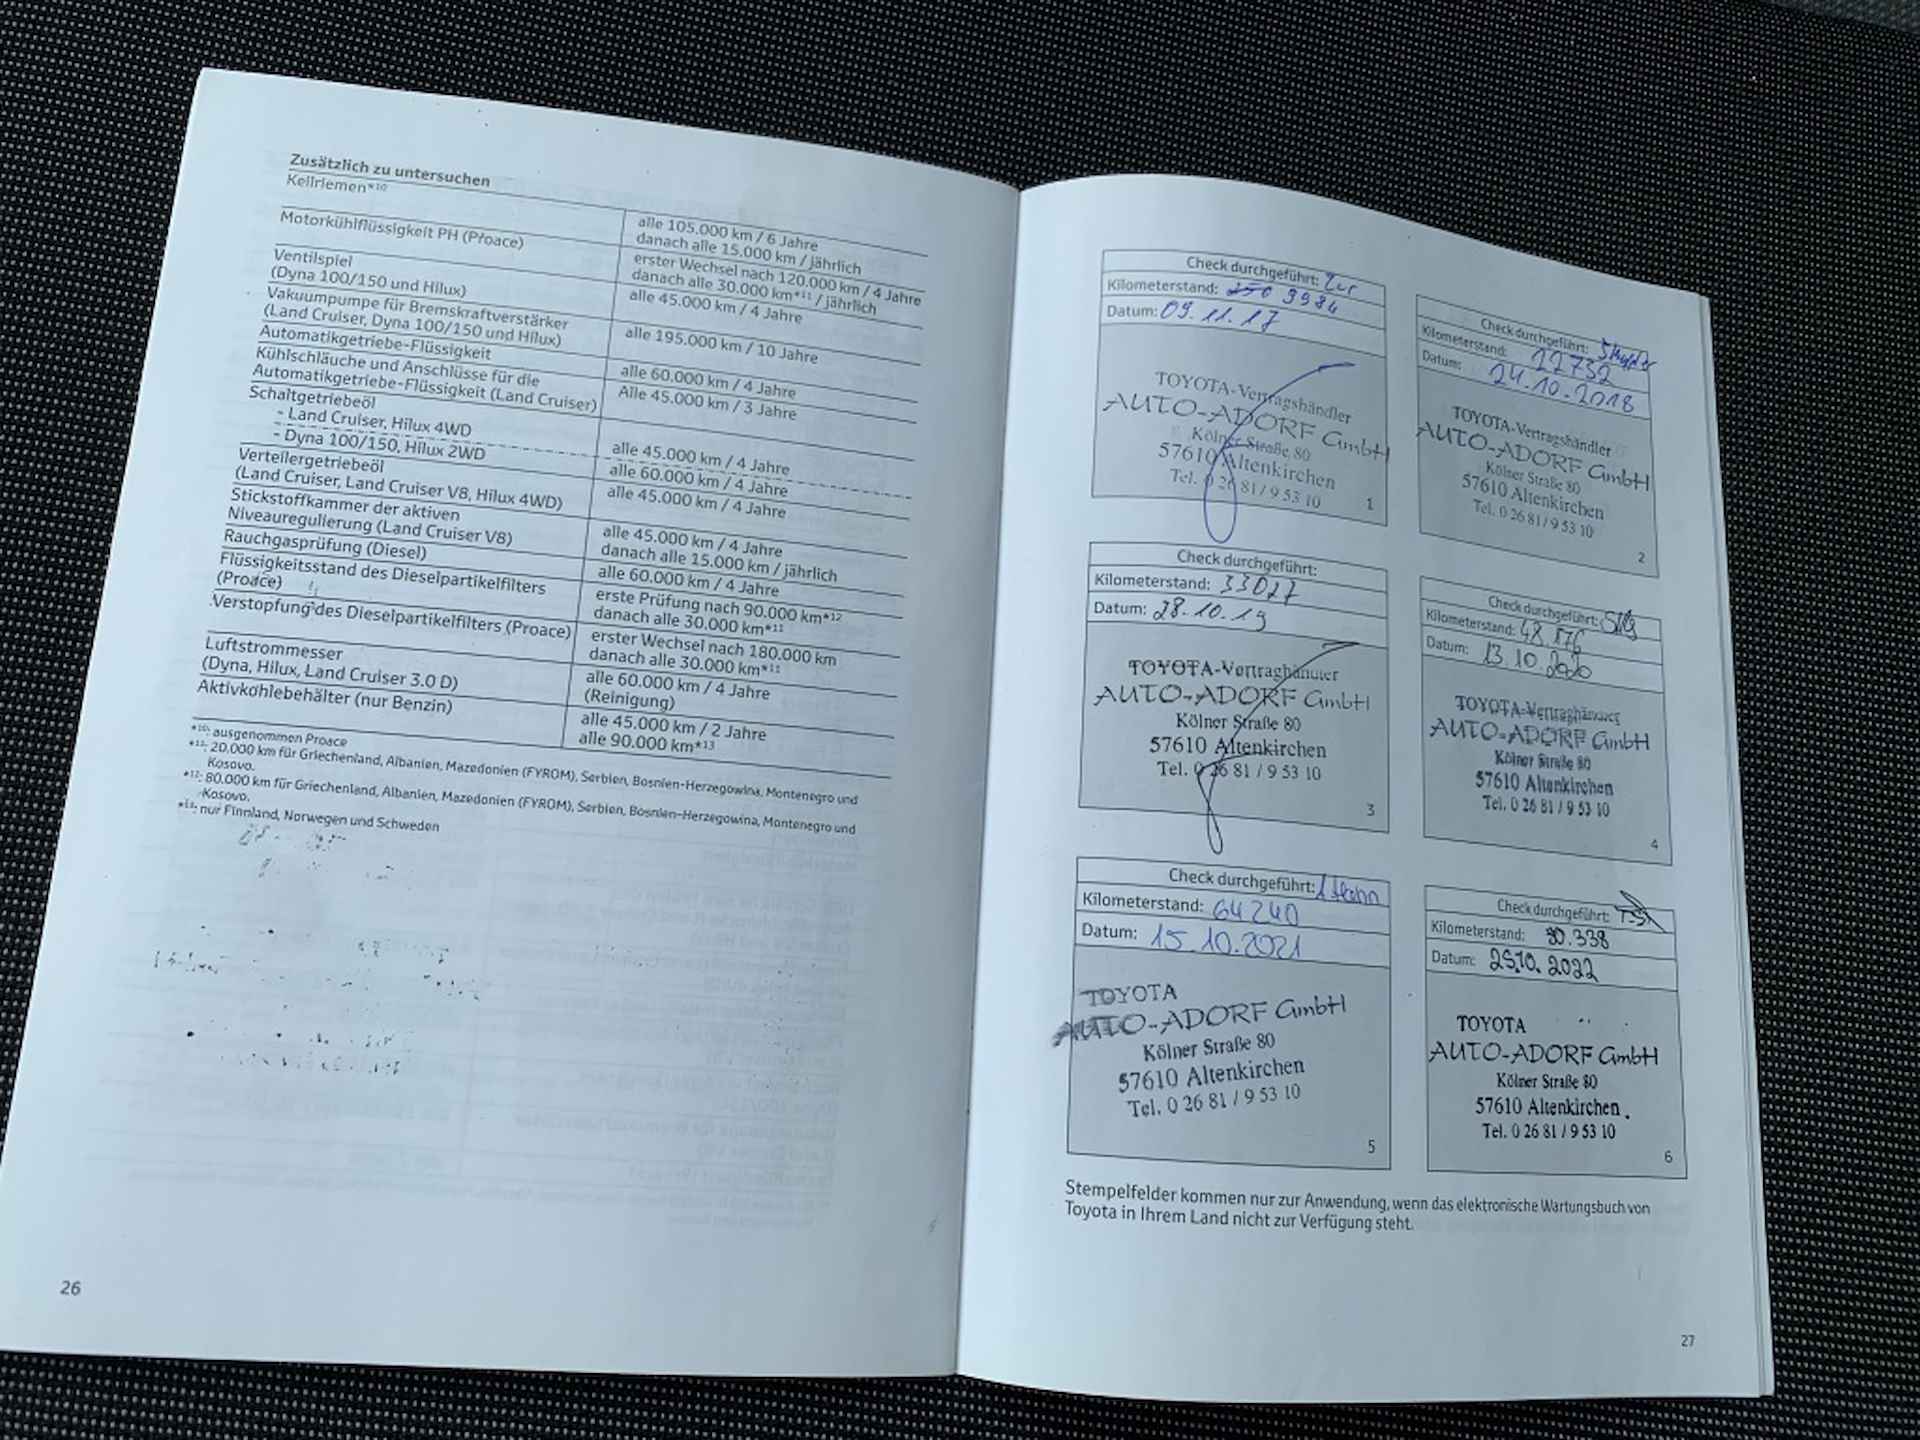 Zusätzlich zu untersuchen
Keilriemen*10
alle 105.000 km / 6 Jahre
danach alle 15.000 km / jährlich
Motorkühlflüssigkeit PH (Proace)
erster Wechsel nach 120.000 km / 4 Jahre
danach alle 30.000 km*11 / jährlich
Ventilspiel
(Dyna 100/150 und Hilux)
alle 45.000 km / 4 Jahre
Vakuumpumpe für Bremskraftverstärker
(Land Cruiser, Dyna 100/150 und Hilux)
alle 195.000 km / 10 Jahre
Automatikgetriebe-Flüssigkeit
alle 60.000 km / 4 Jahre
Kühlschläuche und Anschlüsse für die
Automatikgetriebe-Flüssigkeit (Land Cruiser)
Alle 45.000 km / 3 Jahre
Schaltgetriebeöl
- Land Cruiser, Hilux 4WD
alle 45.000 km / 4 Jahre
- Dyna 100/150, Hilux 2WD
alle 60.000 km / 4 Jahre
Verteilergetriebeöl
(Land Cruiser, Land Cruiser V8, Hilux 4WD)
alle 45.000 km / 4 Jahre
Stickstoffkammer der aktiven
Niveauregulierung (Land Cruiser V8)
alle 45.000 km / 4 Jahre
danach alle 15.000 km / jährlich
Rauchgasprüfung (Diesel)
alle 60.000 km / 4 Jahre
Flüssigkeitsstand des Dieselpartikelfilters
(Proace)
erste Prüfung nach 90.000 km*12
danach alle 30.000 km*11
Verstopfung des Dieselpartikelfilters (Proace)
erster Wechsel nach 180.000 km
danach alle 30.000 km*11
Luftstrommesser
(Dyna, Hilux, Land Cruiser 3.0 D)
alle 60.000 km / 4 Jahre
(Reinigung)
Aktivkohlebehälter (nur Benzin)
alle 45.000 km / 2 Jahre
alle 90.000 km*13
*10: ausgenommen Proace
*11: 20.000 km für Griechenland, Albanien, Mazedonien (FYROM), Serbien, Bosnien-Herzegowina, Montenegro und
Kosovo.
*12: 80.000 km für Griechenland, Albanien, Mazedonien (FYROM), Serbien, Bosnien-Herzegowina, Montenegro und
Kosovo.
*13: nur Finnland, Norwegen und Schweden
26
Check durchgeführt:
Kilometerstand: 9984
Datum: 09.11.17
TOYOTA-Vertragshändler
AUTO-ADORF GmbH
Kölner Straße 80
57610 Altenkirchen
Tel. 0 26 81 / 9 53 10
1
Check durchgeführt:
Kilometerstand: 22732
Datum: 24.10.2018
TOYOTA-Vertragshändler
AUTO-ADORF GmbH
Kölner Straße 80
57610 Altenkirchen
Tel. 0 26 81 / 9 53 10
2
Check durchgeführt:
Kilometerstand: 33027
Datum: 28.10.19
TOYOTA-Vertraghändler
AUTO-ADORF GmbH
Kölner Straße 80
57610 Altenkirchen
Tel. 0 26 81 / 9 53 10
3
Check durchgeführt:
Kilometerstand:
Datum: 13 10 2020
TOYOTA-Vertraghändler
AUTO-ADORF GmbH
Kölner Straße 80
57610 Altenkirchen
Tel. 0 26 81 / 9 53 10
4
Check durchgeführt:
Kilometerstand: 64240
Datum: 15.10.2021
TOYOTA
AUTO-ADORF GmbH
Kölner Straße 80
57610 Altenkirchen
Tel. 0 26 81 / 9 53 10
5
Check durchgeführt:
Kilometerstand: 80.338
Datum: 25.10.2022
TOYOTA
AUTO-ADORF GmbH
Kölner Straße 80
57610 Altenkirchen
Tel. 0 26 81 / 9 53 10
6
Stempelfelder kommen nur zur Anwendung, wenn das elektronische Wartungsbuch von
Toyota in Ihrem Land nicht zur Verfügung steht.
27